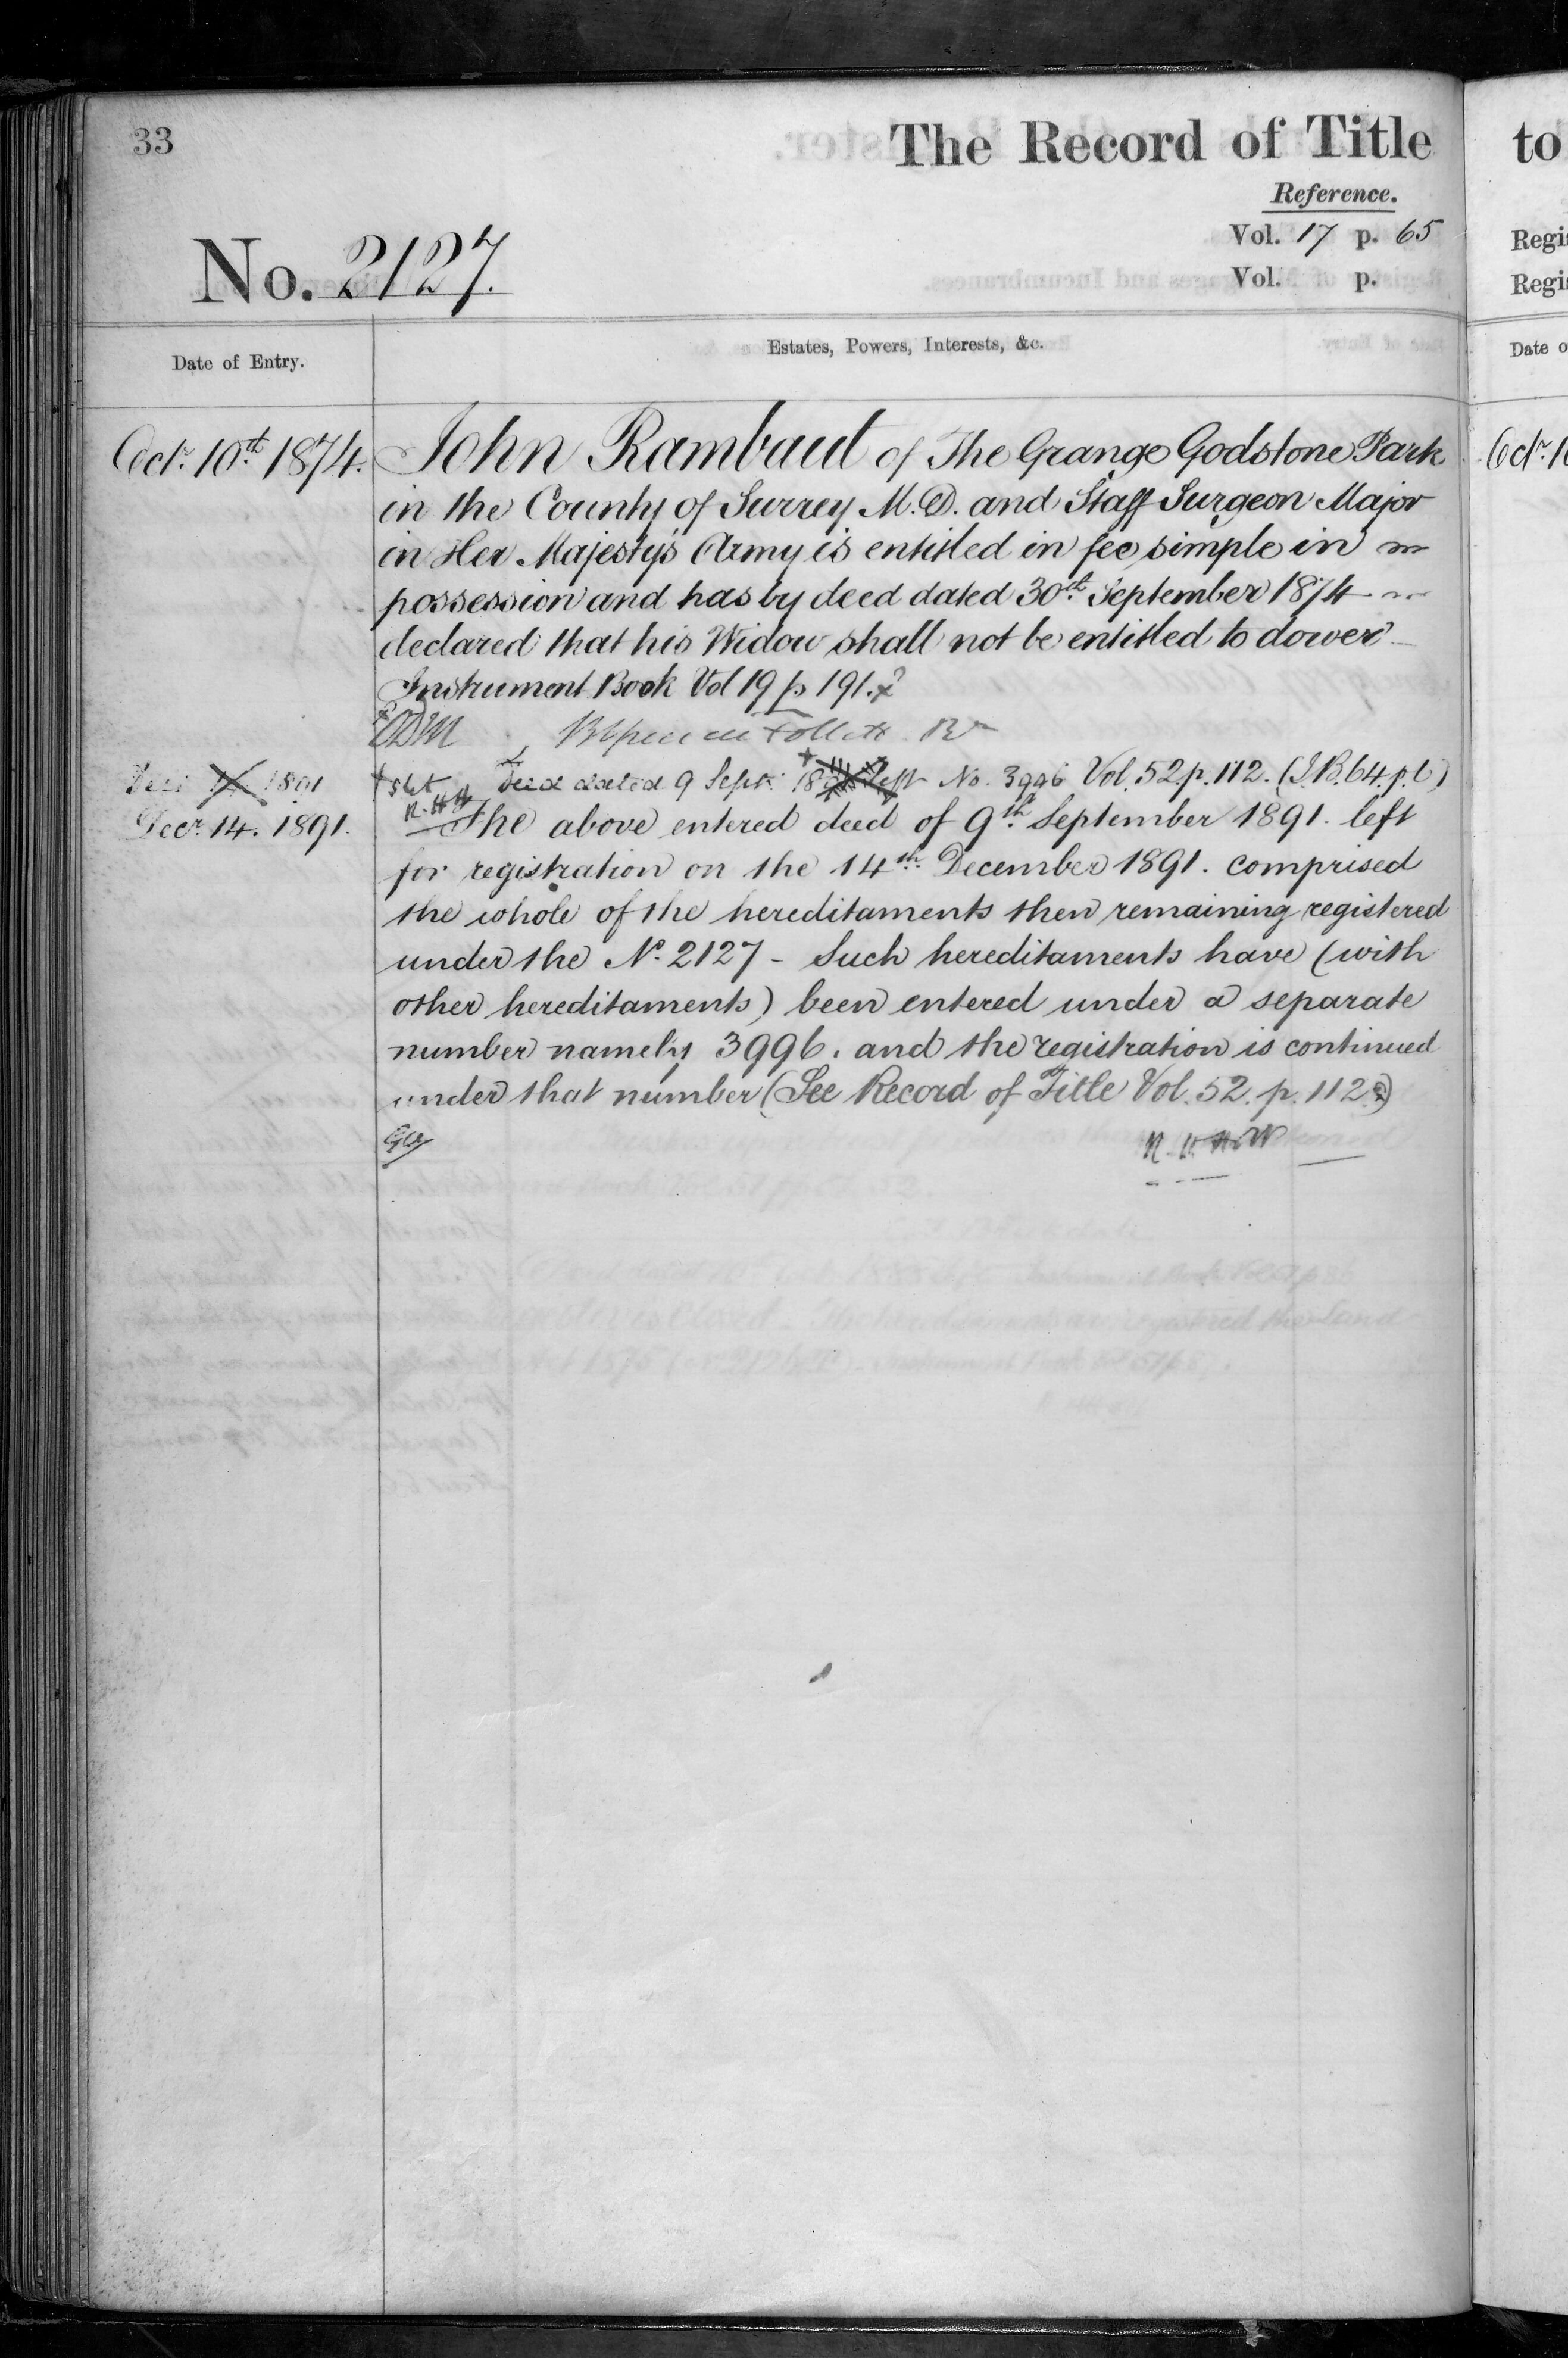 33
The Record of Title
to
Reference.
Vol. 17 p. 65
Vol. p.
No. 2127.
Date of Entry.
Estates, Powers, Interests, &c.
Octr. 10th 1874. John Rambaut of The Grange Godstone Park
in the County of Surrey M.D. and Staff Surgeon Major
in Her Majestys Army is entitled in fee simple in
possession and has by deed dated 30th September 1874
declared that his Widow shall not be entitled to dower
Instrument Book Vol 19 p 191.
1891 Deed dated 9 Sept. No. 3996 Vol. 52 p. 112. (I.B. 64. p. 6)
Decr. 14. 1891. The above entered deed of 9th. September 1891. left
for registration on the 14th. December 1891. comprised
the whole of the hereditaments then remaining registered
under the No. 2127 - Such hereditaments have (with
other hereditaments) been entered under a separate
number namely 3996. and the registration is continued
under that number (See Record of Title Vol. 52. p. 112.)